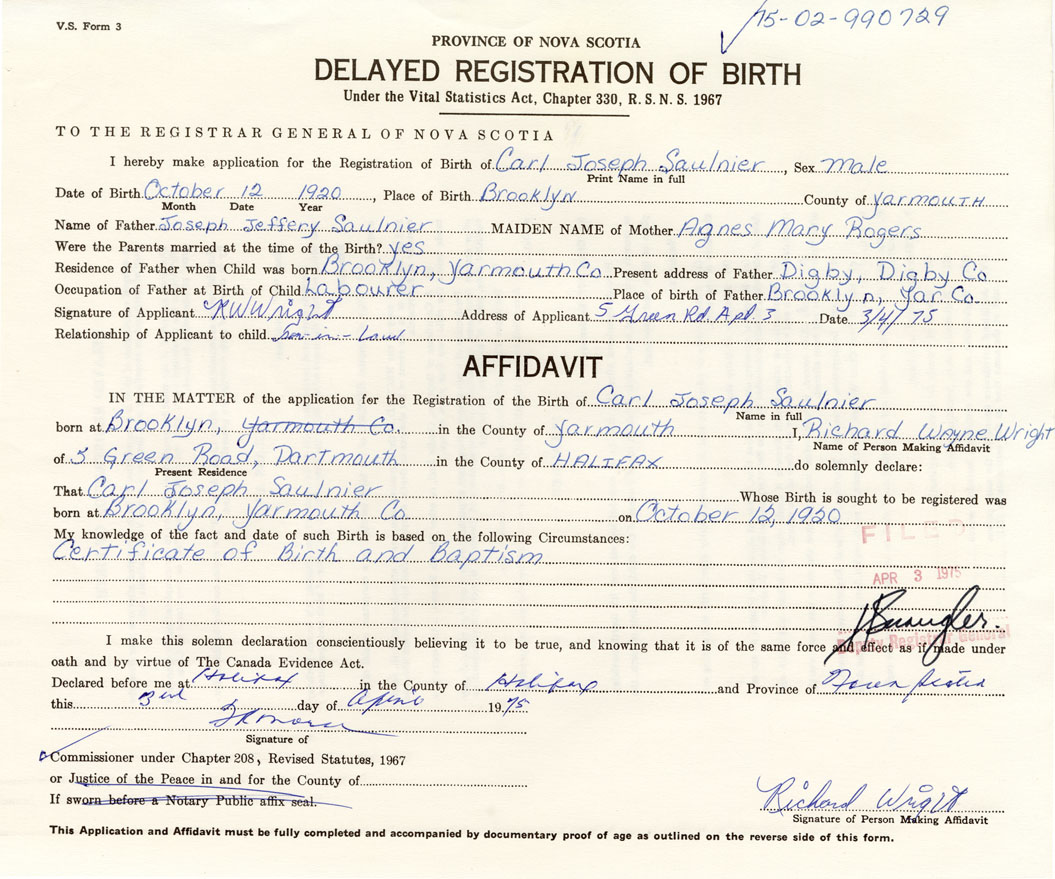 V.S. Form 3
75-02-990729
PROVINCE OF NOVA SCOTIA
DELAYED REGISTRATION OF BIRTH
Under the Vital Statistics Act, Chapter 330, R. S. N. S. 1967
TO THE REGISTRAR GENERAL OF NOVA SCOTIA
I hereby make application for the Registration of Birth of Carl Joseph Saulnier, Sex Male
Print Name in full
Date of Birth October 12 1920, Place of Birth Brooklyn County of Yarmouth
Month Date Year
Name of Father Joseph Jeffery Saulnier MAIDEN NAME of Mother Agnes Mary Rogers
Were the Parents married at the time of the Birth? yes
Residence of Father when Child was born Brooklyn, Yarmouth Co Present address of Father Digby, Digby Co
Occupation of Father at Birth of Child Labourer Place of birth of Father Brooklyn, Yar Co.
Signature of Applicant RWWright Address of Applicant 5 Green Rd Apt 3 Date 3/4/75
Relationship of Applicant to child Son-in-Law
AFFIDAVIT
IN THE MATTER of the application for the Registration of the Birth of Carl Joseph Saulnier
Name in full
born at Brooklyn, Yarmouth Co. in the County of Yarmouth I, Richard Wayne Wright
Name of Person Making Affidavit
of 5 Green Road, Dartmouth in the County of HALIFAX do solemnly declare:
Present Residence
That Carl Joseph Saulnier Whose Birth is sought to be registered was
born at Brooklyn, Yarmouth Co on October 12, 1920
My knowledge of the fact and date of such Birth is based on the following Circumstances:
Certificate of Birth and Baptism
FILED
APR 3 1975
Deputy Registrar General
I make this solemn declaration conscientiously believing it to be true, and knowing that it is of the same force and effect as if made under
oath and by virtue of The Canada Evidence Act.
Declared before me at Halifax in the County of Halifax and Province of Nova Scotia
this 3rd day of April 1975
Signature of
Commissioner under Chapter 208, Revised Statutes, 1967
or Justice of the Peace in and for the County of
If sworn before a Notary Public affix seal.
Richard Wright
Signature of Person Making Affidavit
This Application and Affidavit must be fully completed and accompanied by documentary proof of age as outlined on the reverse side of this form.